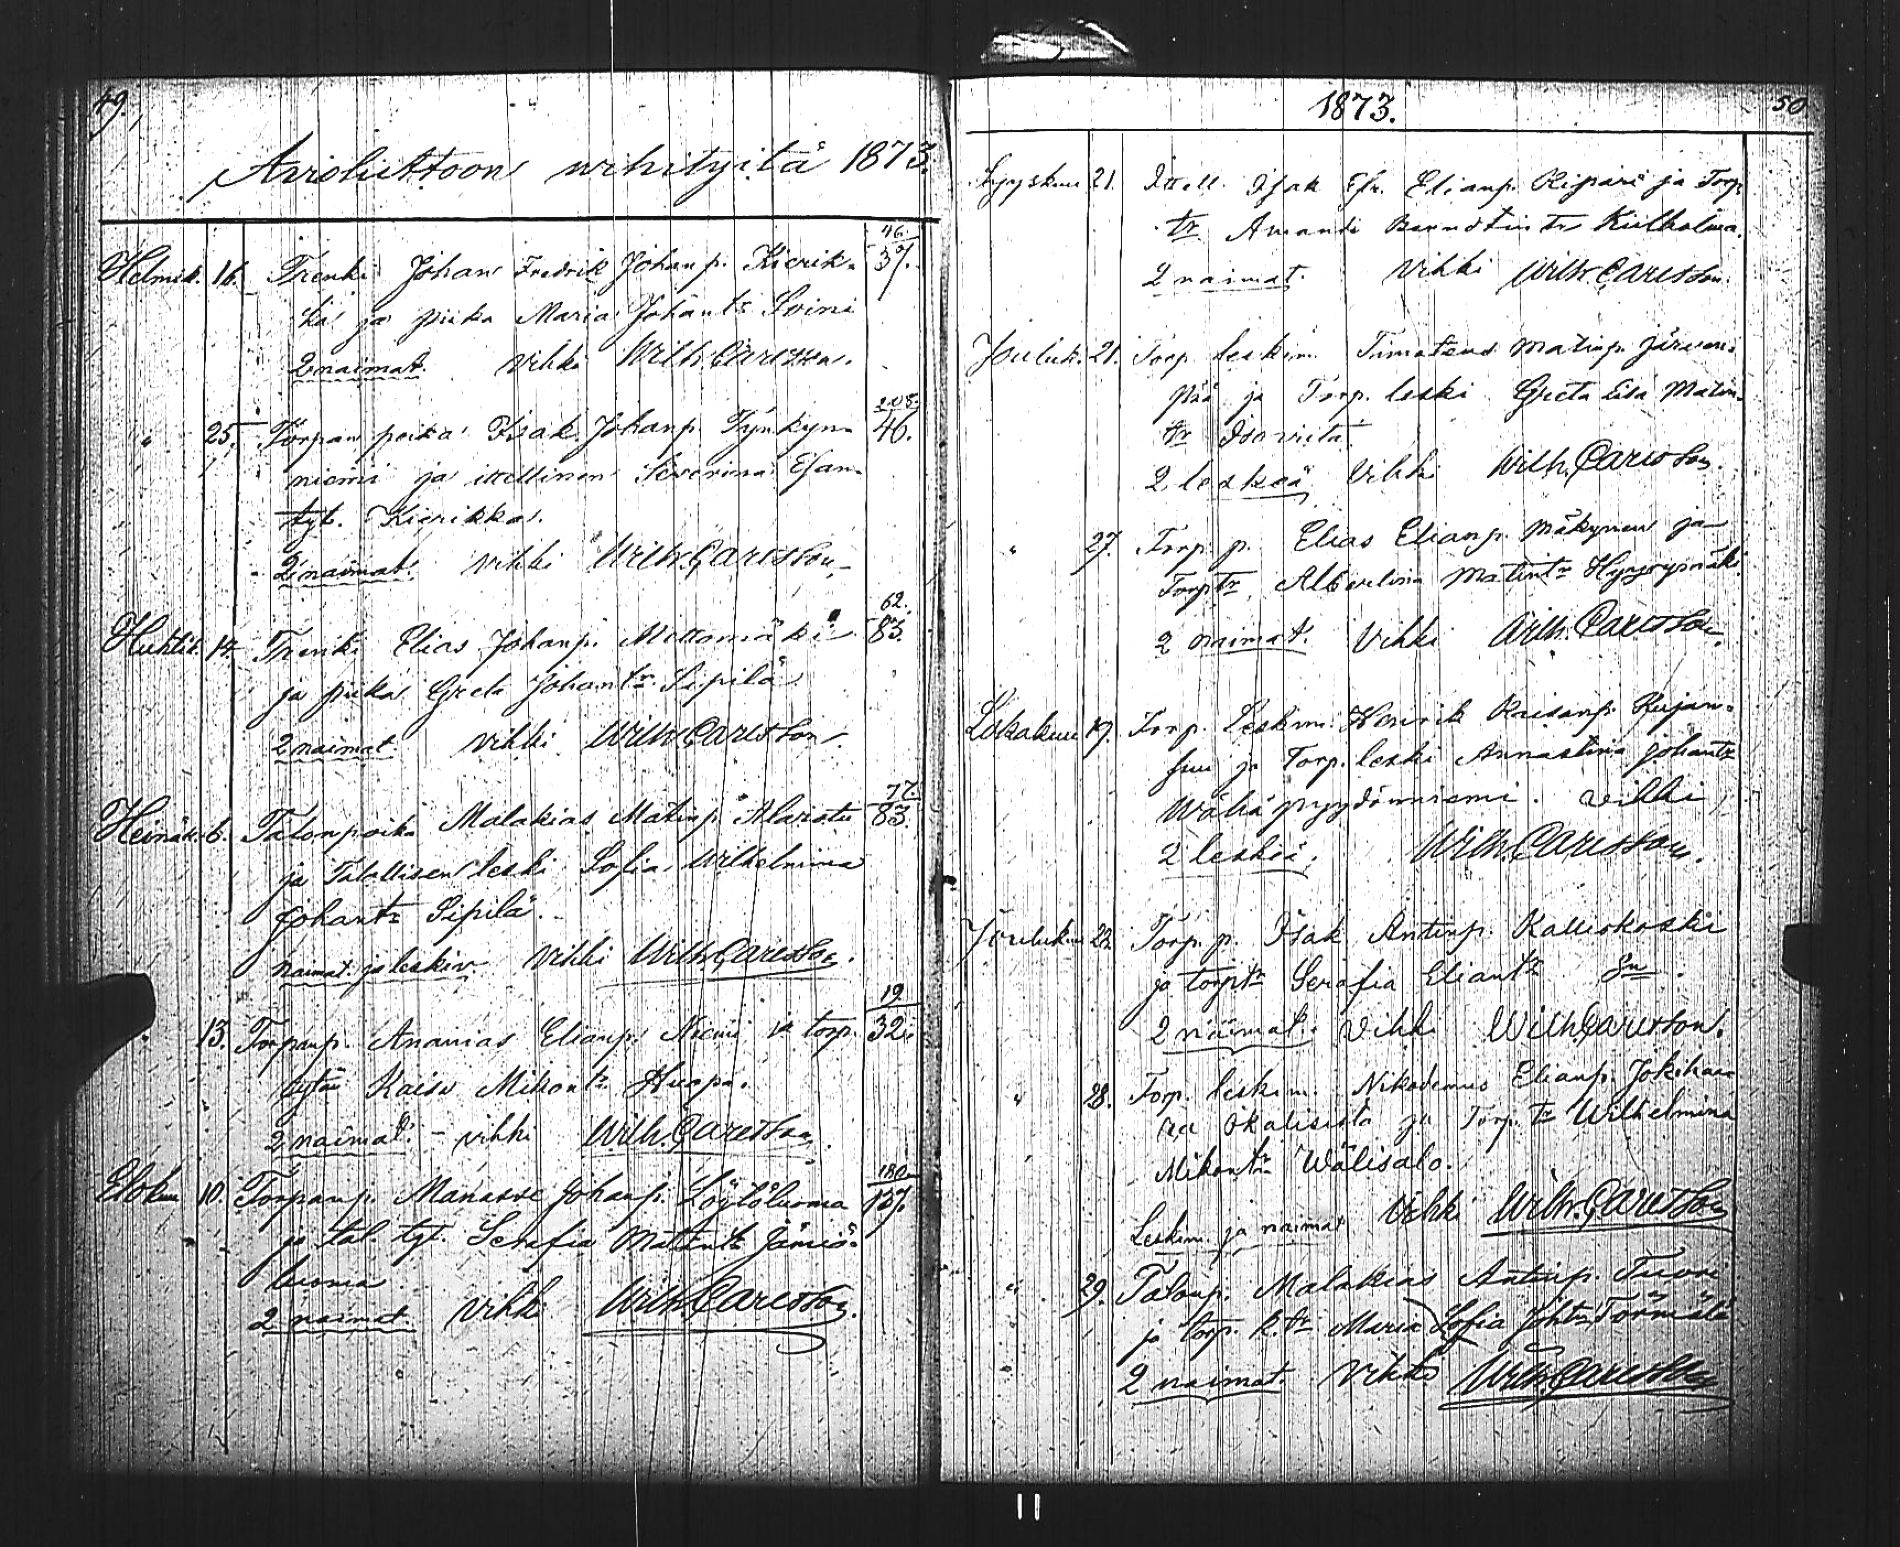 49.
Avioliittoon wihityitä 1873.
46.
Helmik. 16. Trenki Johan Fredrik Johanp. Kierik- 37.
ka ja piika Maria Johantr Soini
2 naimat. Vihki Wilh. Carlsson.
208.
" 25. Torpan poika Isak Johanp. Tynkyn- 40.
niemi ja ittellinen Severina Esan-
tyt. Kierikka.
2 naimat. Vihki Wilh. Carlsson.
62.
Huhtik. 14. Trenki Elias Johanp. Mettomäki 83.
ja piika Greta Johantr. Sipilä
2 naimat. Vihki Wilh. Carlsson.
77.
Heinäk. 6. Talonpoika Malakias Matinp. Alaristu 83.
ja Talollisen leski Sofia Wilhelmina
Johantr Sipilä.
naimat. ja leskiv. Vihki Wilh. Carlsson.
19.
" 13. Torpanp. Ananias Elianp. Niemi ja torp. 32.
tytär Kaisa Mikontr Huopa.
2 naimat. - vihki Wilh. Carlsson.
180
Elokuu 10. Torpanp. Manasse Johanp. Löytöluoma 137.
ja tal. tyt. Serafia Matintr Jämiä-
luoma
2 naimat. Vihki Wilh. Carlsson.
1873.
50
Syyskuu 21. Ittell. Isak Elianp. Ripari ja Torp.
tr. Amanda Kulhalma.
2 naimat. Vihki Wilh. Carlsson.
Jouluk. 21. Torp. leskim. Timoteus Matinp. Järven-
pää ja Torp. leski Greta Lisa Matin-
tr Isoviita.
2 leskeä Vihki Wilh. Carlsson.
" 27. Torp. p. Elias Elianp. Mäkynen ja
Torptr. Albertina Matintr Hyyrynmäki.
2 naimat. Vihki Wilh. Carlsson.
Lokakuu 19. Torp. Leskim. Henrik Kaisanp. Kujan-
suu ja Torp. leski Annastina Johantr
Wähäpyydönniemi. Vihki
2 leskiä. Wilh. Carlsson.
Joulukuu 22. Torp. p. Isak Antinp. Kalliokoski
ja torptr Serafia Eliantr
2 naimat. Vihki Wilh. Carlsson.
" 28. Torp. leskim. Nikodemus Elianp. Jokihaa-
ra Ikalisista ja Torp. tr Wilhelmina
Mikontr Wälisalo.
Leskim. ja naimat Vihki Wilh. Carlsson
" 29. Talonp. Malakias Antinp. Tuori
ja torp. k. tr Maria Sofia Johtr Törmälä
2 naimat. Vihki Wilh. Carlsson
11